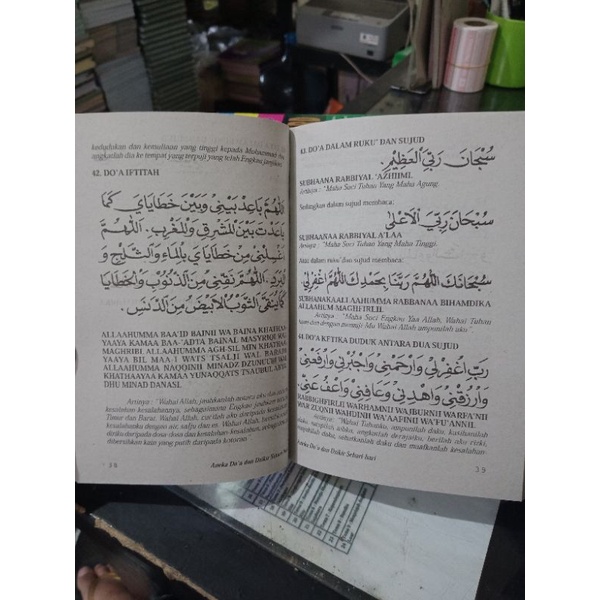 kedudukan dan kemuliaan yang tinggi kepada Muhammad dan
angkatlah dia ke tempat yang terpuji yang telah Engkau janjikan
42. DO'A IFTITAH
اَللّٰهُمَّ بَاعِدْ بَيْنِيْ وَبَيْنَ خَطَايَايَ كَمَا
بَاعَدْتَ بَيْنَ الْمَشْرِقِ وَالْمَغْرِبِ. اَللّٰهُمَّ
اغْسِلْنِيْ مِنْ خَطَايَايَ بِالْمَاءِ وَالثَّلْجِ وَ
الْبَرَدِ. اَللّٰهُمَّ نَقِّنِيْ مِنَ الذُّنُوْبِ وَالْخَطَايَا
كَمَا يُنَقَّى الثَّوْبُ الْاَبْيَضُ مِنَ الدَّنَسِ.
ALLAAHUMMA BAA'ID BAINII WA BAINA KHATHAA
YAAYA KAMAA BAA-'ADTA BAINAL MASYRIQI WAL
MAGHRIBI ALLAAHUMMA AGH-SIL MIN KHATHAA
YAAYA BIL MAA-I WATS TSALJI WAL BARADI
ALLAAHUMMA NAQQINII MINADZ DZUNUUBI WAL
KHATHAAYAA KAMAA YUNAQQATS TSAUBUL ABYA
DHU MINAD DANASI.
Artinya : "Wahai Allah, jauhkanlah antara aku dan
kesalahan-kesalahanku, sebagaimana Engkau jauhkan
Timur dan Barat. Wahai Allah, cucilah aku daripada
kesalahanku dengan air, salju dan es. Wahai Allah,
aku daripada dosa-dosa dan kesalahan-kesalahan
dibersihkan kain yang putih daripada kotoran
38
Aneka Do'a dan Dzikir
43. DO'A DALAM RUKU' DAN SUJUD
سُبْحَانَ رَبِّيَ الْعَظِيْمِ.
SUBHAANA RABBIYAL 'AZHIIMI.
Artinya : "Maha Suci Tuhan Yang Maha Agung.
Sedangkan dalam sujud membaca:
سُبْحَانَ رَبِّيَ الْاَعْلَى
SUBHAANAA RABBIYAL A'LAA
Artinya : "Maha Suci Tuhan Yang Maha Tinggi.
Atau dalam ruku' dan sujud membaca:
سُبْحَانَكَ اللّٰهُمَّ رَبَّنَا بِحَمْدِكَ اللّٰهُمَّ اغْفِرْلِيْ
SUBHANAKAALI AAHUMMA RABBANAA BIHAMDIKA
ALLAAHUM MAGHFIRLII.
Artinya : "Maha Suci Engkau Yaa Allah, Wahai Tuhan
dan dengan memuji Mu Wahai Allah ampunilah aku".
44. DO'A KETIKA DUDUK ANTARA DUA SUJUD
رَبِّ اغْفِرْلِيْ وَارْحَمْنِيْ وَاجْبُرْنِيْ وَارْفَعْنِيْ
وَارْزُقْنِيْ وَاهْدِنِيْ وَعَافِنِيْ وَاعْفُ عَنِّيْ.
RABBIGHFIRLII WARHAMNII WAJBURNII WARFA'NII
WAR ZUQNII WAHDINII WA'AAFINII WA'FU'ANNII.
Artinya : "Wahai Tuhanku, ampunilah daku, kasihanilah
daku, cukupkanlah daku, angkatlah derajatku, berilah aku rizki,
daku, sehatkanlah daku dan maafkanlah kesalahan-
Aneka Do'a dan Dzikir Sehari-hari
39